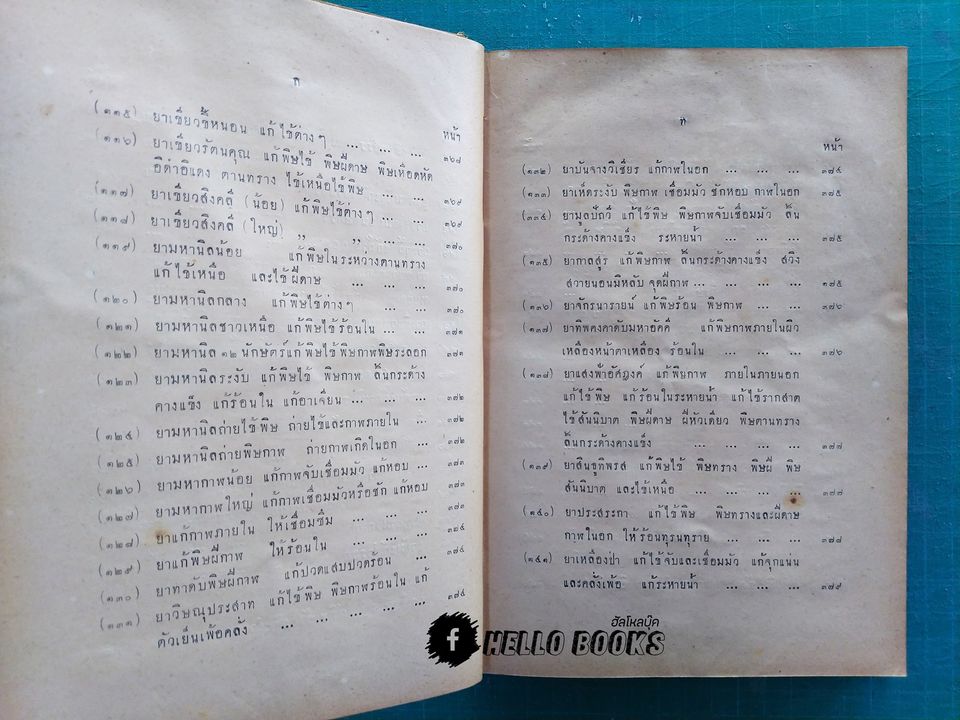 ก
หน้า
(๑๑๕) ยาเขียวขี้หนอน แก้ไข้ต่างๆ ... ... ... ๓๖๘
(๑๑๖) ยาเขียวรัตนคุณ แก้พิษไข้ พิษฝีดาษ พิษเหือดหัด
อีดำอีแดง ตานทราง ไข้เหนือไข้พิษ ... ... ๓๖๙
(๑๑๗) ยาเขียวสิงคลี (น้อย) แก้พิษไข้ต่างๆ ... ... ๓๖๙
(๑๑๘) ยาเขียวสิงคลี (ใหญ่) ,, ,, ... ... ๓๗๐
(๑๑๙) ยามหานิลน้อย แก้พิษในระหว่างตานทราง
แก้ไข้เหนือ และไข้ฝีดาษ ... ... ... ๓๗๐
(๑๒๐) ยามหานิลกลาง แก้พิษไข้ต่างๆ ... ... ๓๗๐
(๑๒๑) ยามหานิลชาวเหนือ แก้พิษไข้ร้อนใน ... ... ๓๗๑
(๑๒๒) ยามหานิล ๑๒ นักษัตร์แก้พิษไข้พิษกาฬพิษระลอก ๓๗๑
(๑๒๓) ยามหานิลระงับ แก้พิษไข้ พิษกาฬ ลิ้นกระด้าง
คางแข็ง แก้ร้อนใน แก้อาเจียน ... ... ... ๓๗๒
(๑๒๔) ยามหานิลถ่ายไข้พิษ ถ่ายไข้และกาฬภายใน ... ๓๗๒
(๑๒๕) ยามหานิลถ่ายพิษกาฬ ถ่ายกาฬเกิดในอก ... ๓๗๒
(๑๒๖) ยามหากาฬน้อย แก้กาฬจับเชื่อมมัว แก้หอบ ... ๓๗๓
(๑๒๗) ยามหากาฬใหญ่ แก้กาฬเชื่อมมัวหรือชัก แก้หอบ ๓๗๓
(๑๒๘) ยาแก้กาฬภายใน ให้เชื่อมซึม ... ... ... ๓๗๓
(๑๒๙) ยาแก้พิษฝีกาฬ ให้ร้อนใน ... ... ...
(๑๓๐) ยาทาดับพิษฝีกาฬ แก้ปวดแสบปวดร้อน ... ๓๗๔
(๑๓๑) ยาวิษณุประสาท แก้ไข้พิษ พิษกาฬร้อนใน แก้
ตัวเย็นเพ้อคลั่ง ... ... ... ... ๓๗๔
หน้า
(๑๓๒) ยาบันจางวิเชียร แก้กาฬในอก ... ... ... ๓๗๔
(๑๓๓) ยาเห็ดระงับ พิษกาฬ เชื่อมมัว ชักหอบ กาฬในอก ๓๗๕
(๑๓๔) ยามูลปักวี แก้ไข้พิษ พิษกาฬจับเชื่อมมัว ลิ้น
กระด้างคางแข็ง ระหายน้ำ ... ... ... ๓๗๕
(๑๓๕) ยากาลสูร แก้พิษกาฬ ลิ้นกระด้างคางแข็ง สวิง
สวายนอนมิหลับ จุดฝีกาฬ ... ... ... ๓๗๕
(๑๓๖) ยาจักรนารายน์ แก้พิษร้อน พิษกาฬ ... ... ๓๗๖
(๑๓๗) ยาทิพคงคาดับมหาอัคคี แก้พิษกาฬภายในผิว
เหลืองหน้าตาเหลือง ร้อนใน ... ... ... ๓๗๖
(๑๓๘) ยาแสงฟ้าอัสฎงค์ แก้พิษกาฬ ภายในภายนอก
แก้ไข้พิษ แก้ร้อนในระหายน้ำ แก้ไข้รากสาด
ไข้สันนิบาต พิษฝีดาษ ฝีหัวเดียว พิษตานทราง
ลิ้นกระด้างคางแข็ง ... ... ... ... ๓๗๗
(๑๓๙) ยาสินธุทิพรส แก้พิษไข้ พิษทราง พิษฝี พิษ
สันนิบาต และไข้เหนือ ... ... ... ... ๓๗๗
(๑๔๐) ยาประสระกา แก้ไข้พิษ พิษทรางและฝีดาษ
กาฬในอก ให้ร้อนทุรนทุราย ... ... ... ๓๗๘
(๑๔๑) ยาเหลืองป่า แก้ไข้จับและเชื่อมมัว แก้จุกแน่น
และคลั่งเพ้อ แก้ระหายน้ำ ... ... ... ๓๗๙
ฮัลโหลบุ๊ค
f HELLO BOOKS